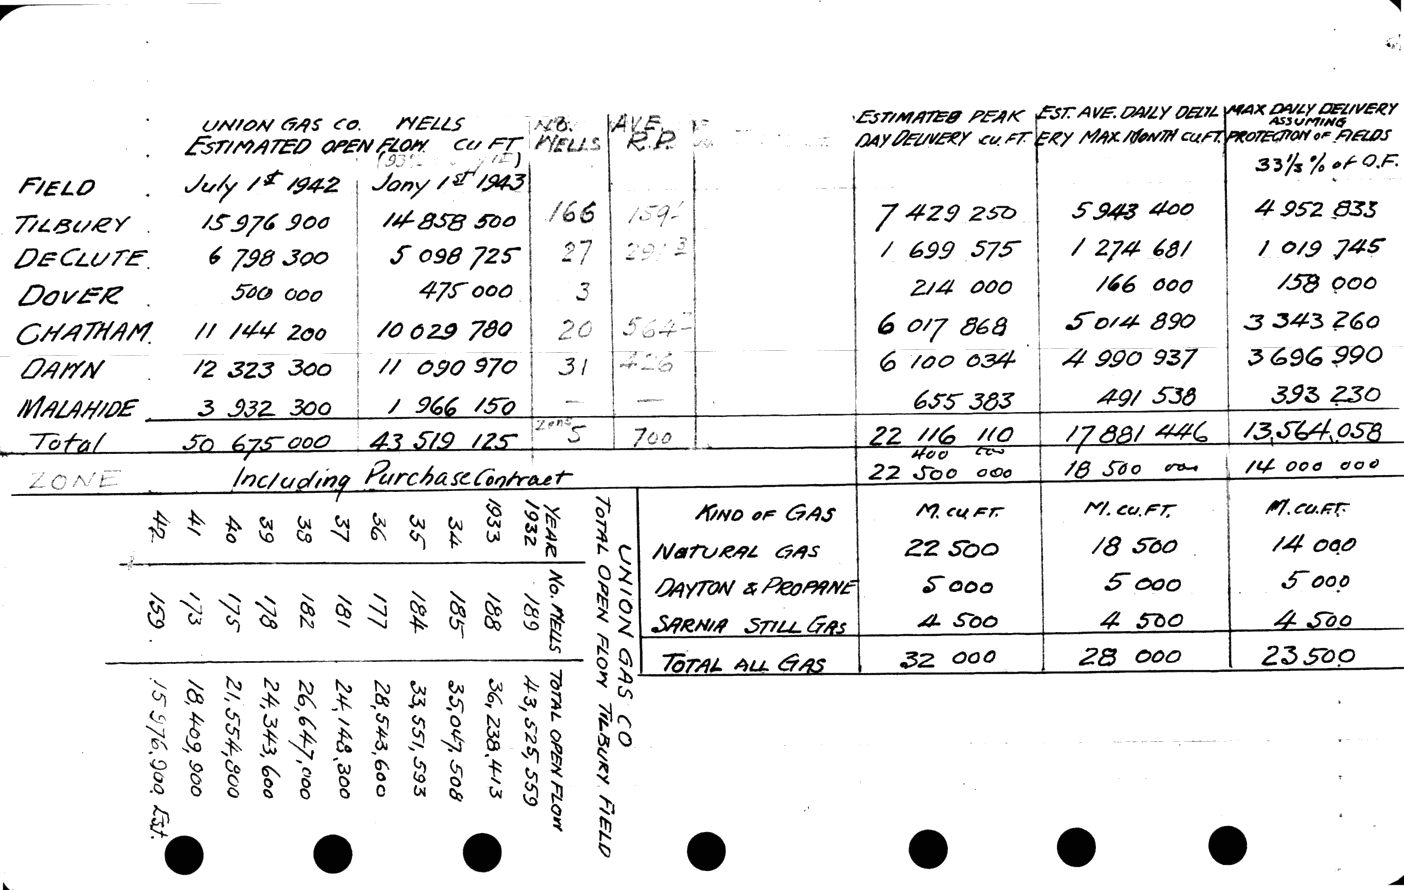 UNION GAS CO. WELLS
ESTIMATED OPEN FLOW CU FT
NO. WELLS
AVE. R.P.
ESTIMATED PEAK DAY DELIVERY CU. FT.
EST. AVE. DAILY DELIVERY MAX. MONTH CU.FT.
MAX DAILY DELIVERY ASSUMING PROTECTION OF FIELDS
33⅓% of O.F.
FIELD July 1st 1942 Jany 1st 1943
TILBURY 15 976 900 14 858 500 166 159 7 429 250 5 943 400 4 952 833
DECLUTE 6 798 300 5 098 725 27 1 699 575 1 274 681 1 019 745
DOVER 500 000 475 000 3 214 000 166 000 158 000
CHATHAM 11 144 200 10 029 780 20 564 6 017 868 5 014 890 3 343 260
DAWN 12 323 300 11 090 970 31 426 6 100 034 4 990 937 3 696 990
MALAHIDE 3 932 300 1 966 150 — — 655 383 491 538 393 230
Total 50 675 000 43 519 125 Zone 5 700 22 116 110 17 881 446 13,564,058
400 000
ZONE Including Purchase Contract 22 500 000 18 500 000 14 000 000
KIND OF GAS M. CU FT. M. CU. FT. M. CU. FT.
NATURAL GAS 22 500 18 500 14 000
DAYTON & PROPANE 5 000 5 000 5 000
SARNIA STILL GAS 4 500 4 500 4 500
TOTAL ALL GAS 32 000 28 000 23 500
UNION GAS CO
TOTAL OPEN FLOW TILBURY FIELD
YEAR No. WELLS TOTAL OPEN FLOW
1932 189 43,525,559
1933 188 36,238,413
34 185 35,047,508
35 184 33,551,593
36 177 28,543,600
37 181 24,148,300
38 182 26,647,000
39 178 24,343,600
40 175 21,554,800
41 173 18,409,900
42 159 15,976,900 Est.